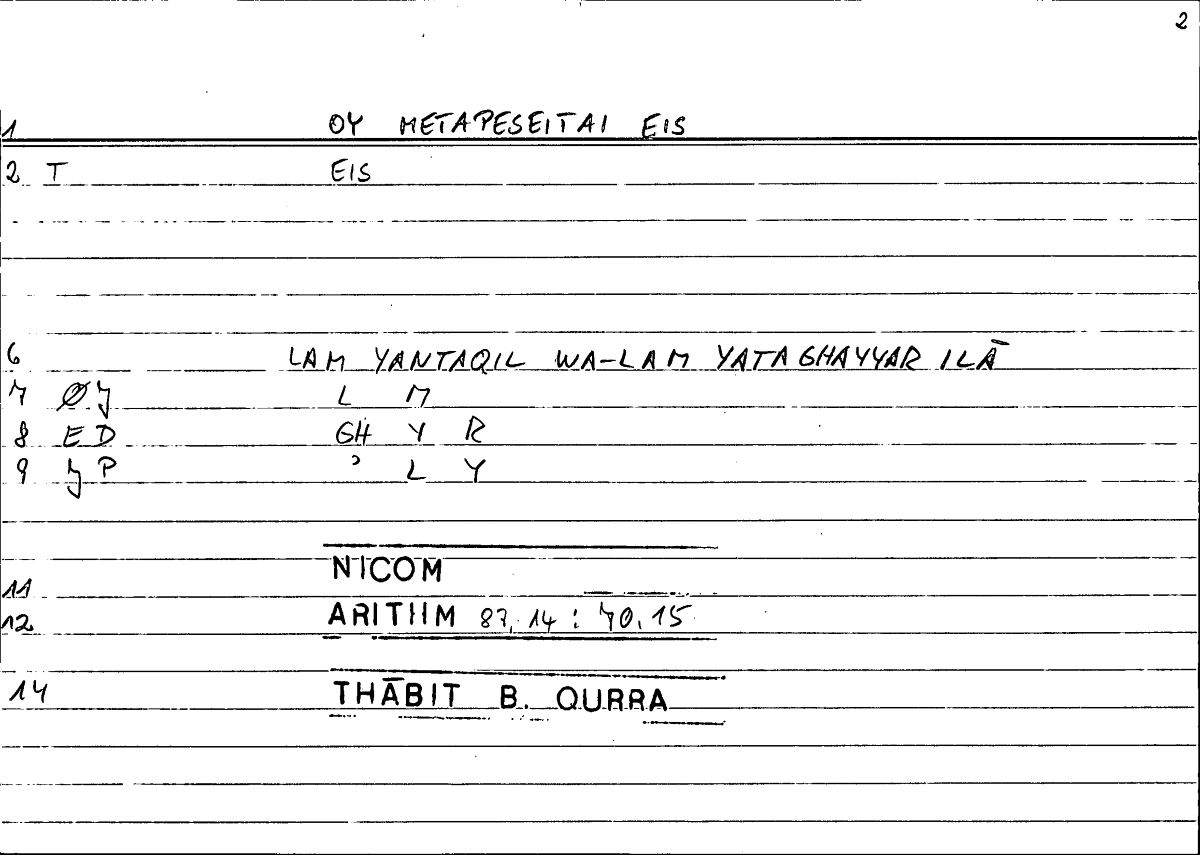 2
1 OY METAPESEITAI EIS
2 T EIS
6 LAM YANTAQIL WA-LAM YATAGHAYYAR ILĀ
7 ØJ L M
8 ED GH Y R
9 JP ʾ L Y
NICOM
11
12 ARITHM 87,14 : 70,15
14 THĀBIT B. QURRA